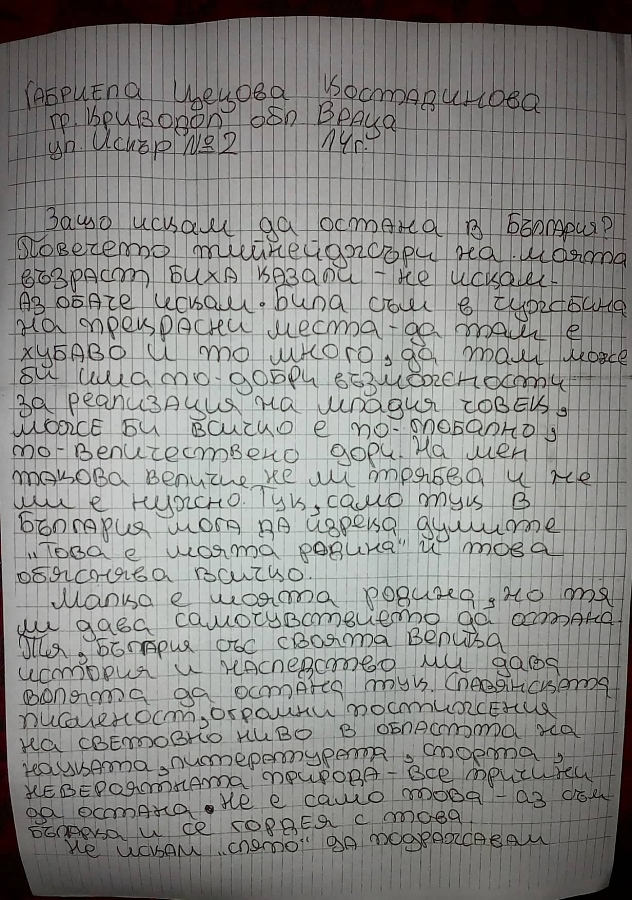 Габриела Цецова Костадинова
гр. Криводол обл Враца
ул. Искър №2 14г.
Защо искам да остана в България?
Повечето тийнейджъри на моята
възраст биха казали - не искам.
Аз обаче искам. Била съм в чужбина
на прекрасни места - да там е
хубаво и то много, да там може
би има по-добри възможности
за реализация на младия човек,
може би всичко е по-глобално,
по-величествено дори. На мен
такова величие не ми трябва и не
ми е нужно. Тук, само тук в
България мога да изрека думите
„Това е моята родина" и това
обяснява всичко.
Малка е моята родина, но тя
ми дава самочувствието да остана.
Тя, България със своята велика
история и наследство ми дава
волята да остана тук. Славянската
писменост, огромни постижения
на световно ниво в областта на
науката, литературата, спорта,
невероятната природа - все причини
да остана. Не е само това - аз съм
българка и се гордея с това
Не искам „сляпо" да подражавам